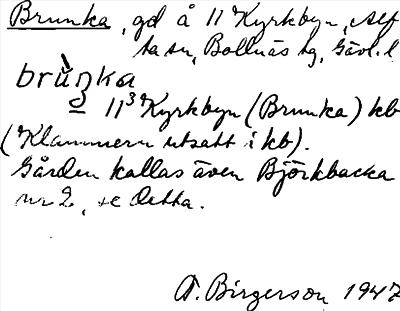 Brunka, gd å 11 Kyrkbyn, Alf
ta sn, Bollnäs tg, Gävl. l
brùŋka
= 11³ Kyrkbyn (Brunka) kb
(Klammern utsatt i kb).
Gården kallas även Björkbacka
nr 2, se detta.
A. Birgerson 1947